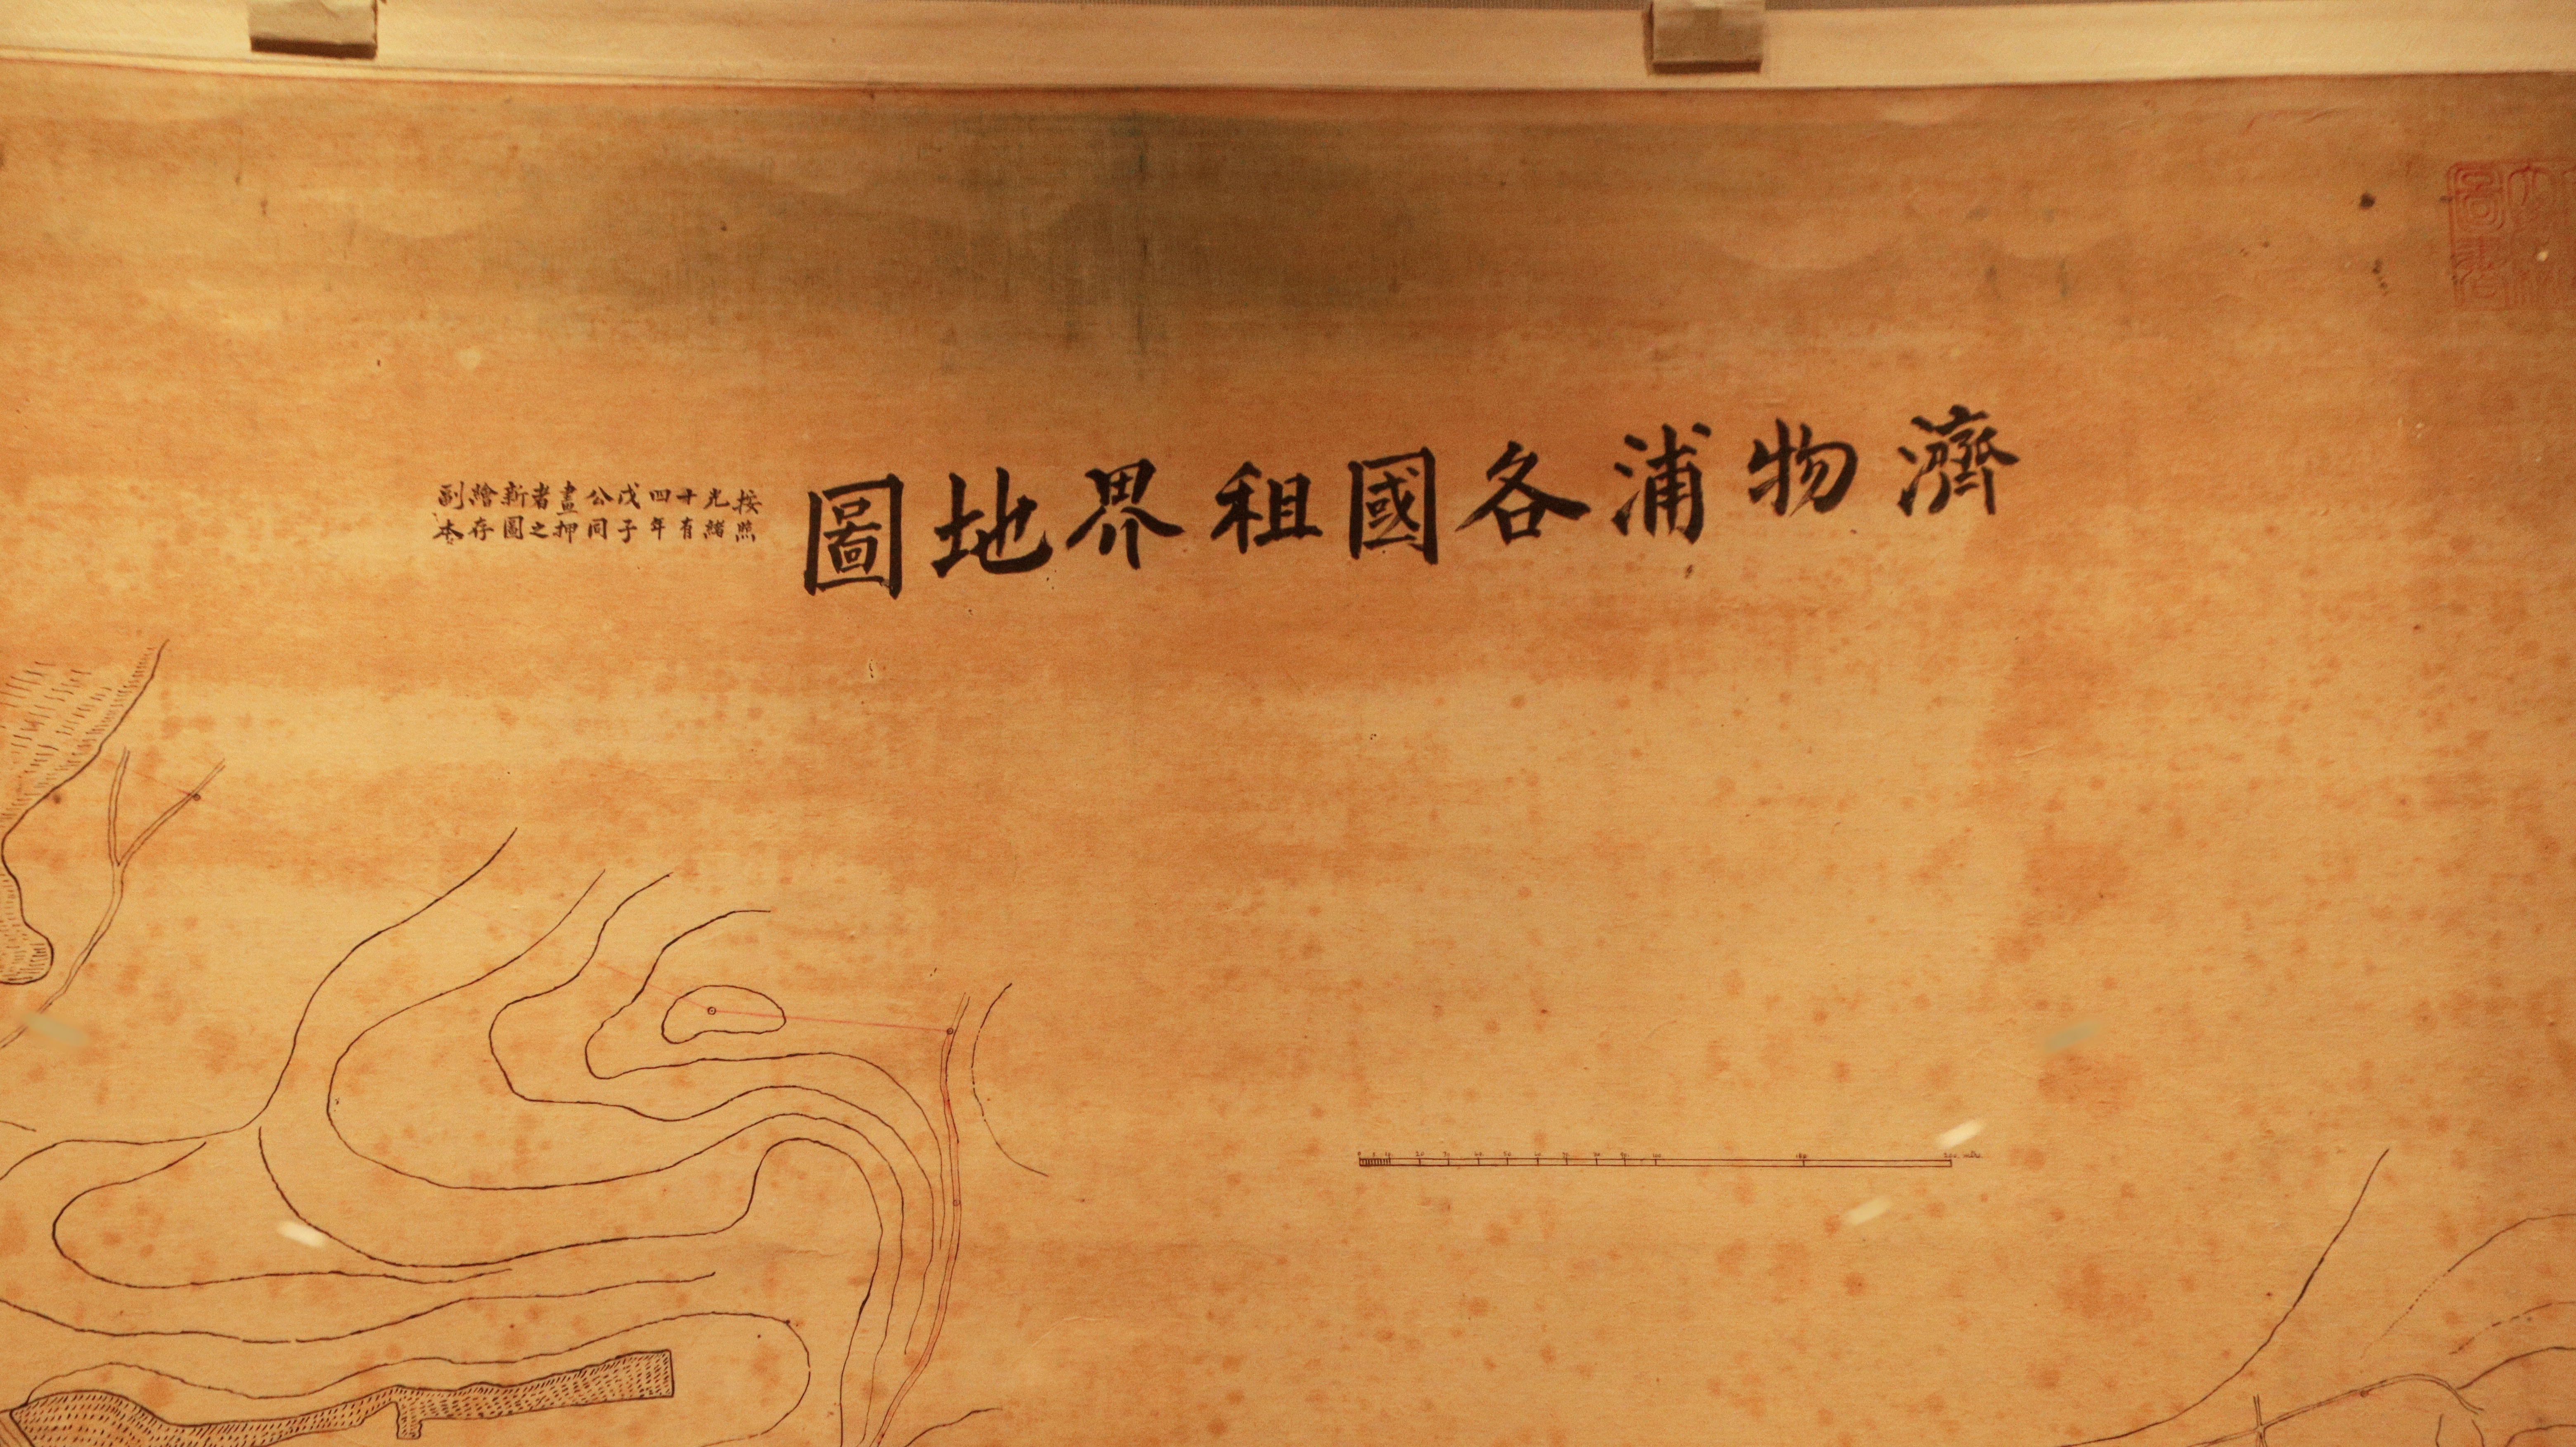 濟物浦各國租界地圖
按照光緒十有四年戊子公同畫押者之新圖繪存副本